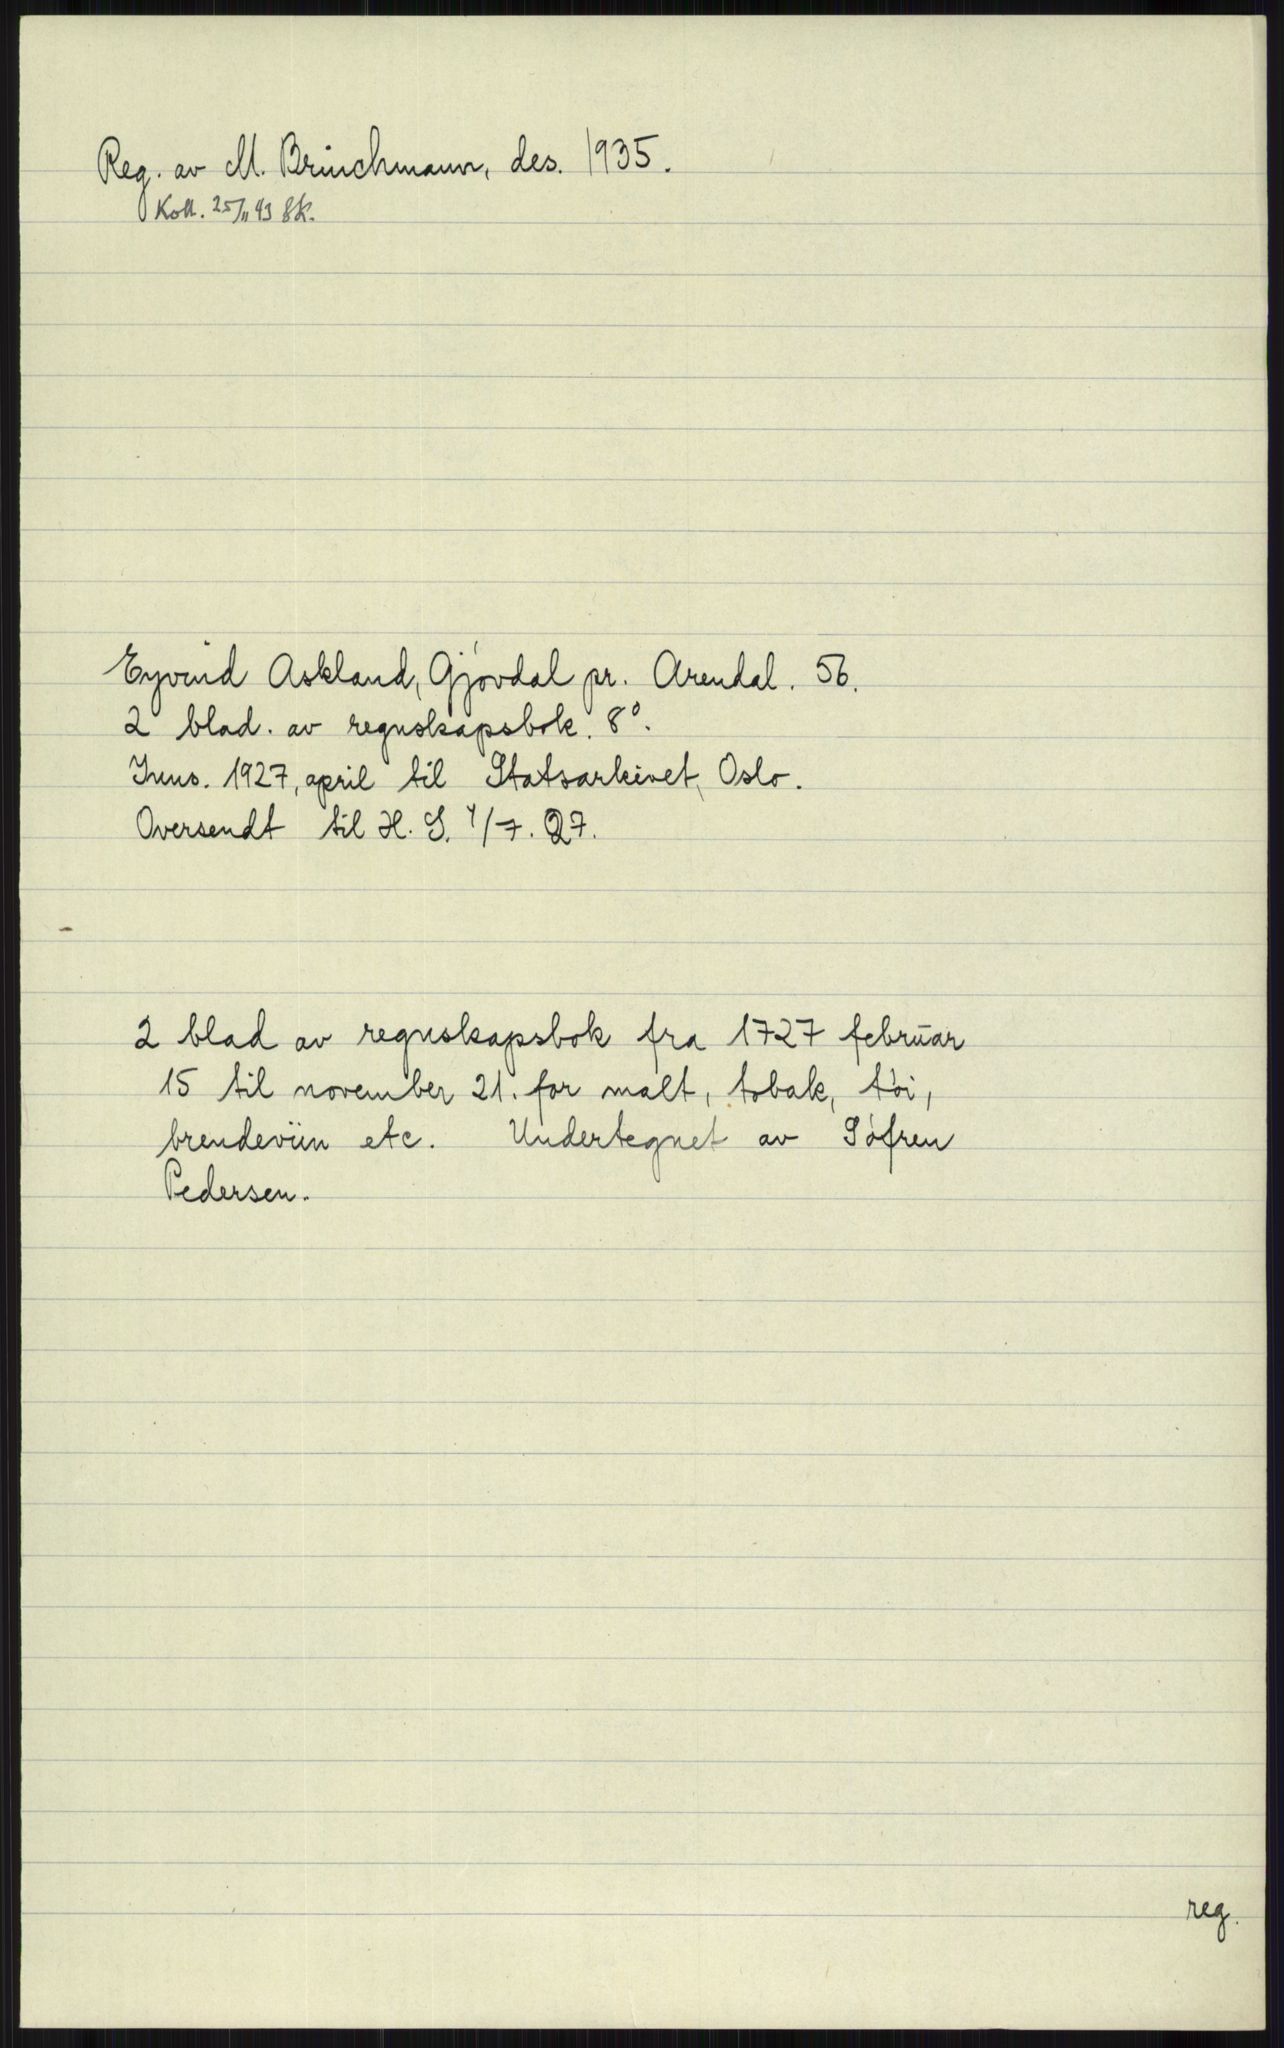 Reg. av M. Brinchmann, des. 1935.
Koll. 25/11 43
Eyvind Askland, Gjövdal pr. Arendal. 56.
2 blad. av regnskapsbok. 8°.
Inns. 1927, april til Statsarkivet, Oslo.
Oversendt til H. S. 4/7. 27.
2 blad av regnskapsbok fra 1727 februar
15 til november 21. for malt, tobak, töi,
brendeviin etc. Undertegnet av Söfren
Pedersen.
reg.